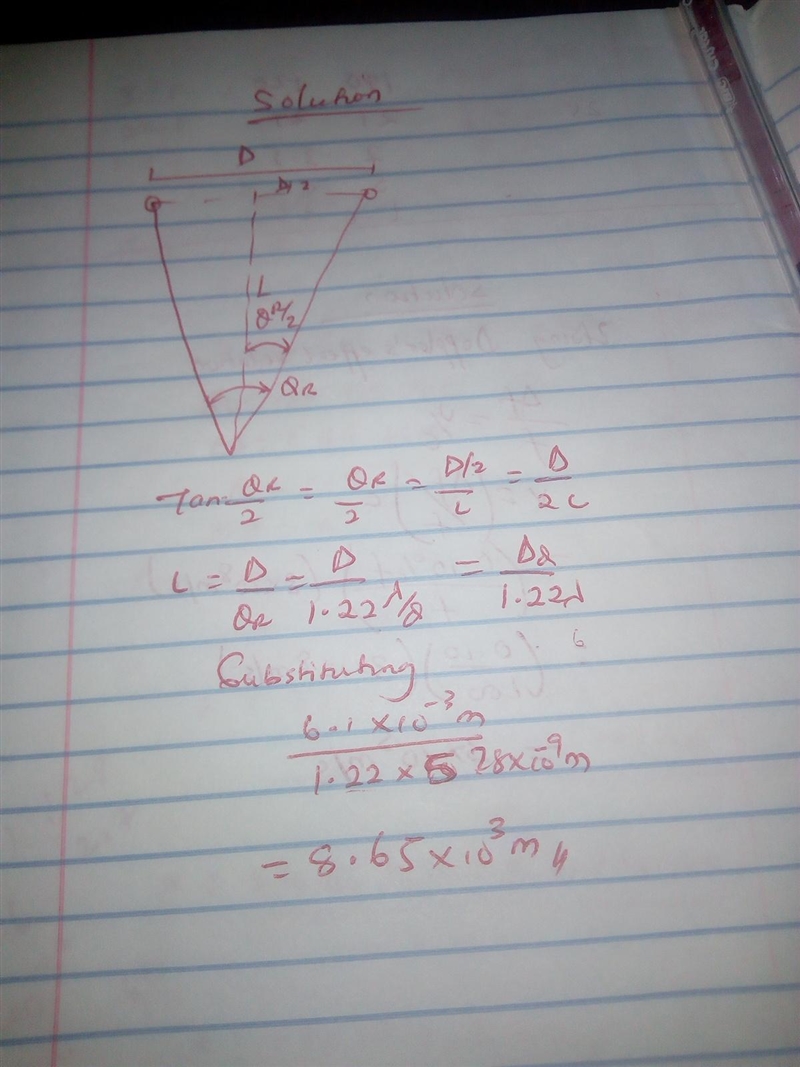 Solution
D
D/2
L
θR/2
θR
Tan θR/2 = θR/2 = D/2/L = D/2L
L = D/θR = D/1.22 λ/d = Dd/1.22λ
Substituting
6.1 x 10⁻³ m / 1.22 x 528 x 10⁻⁹ m
= 8.65 x 10³ m //